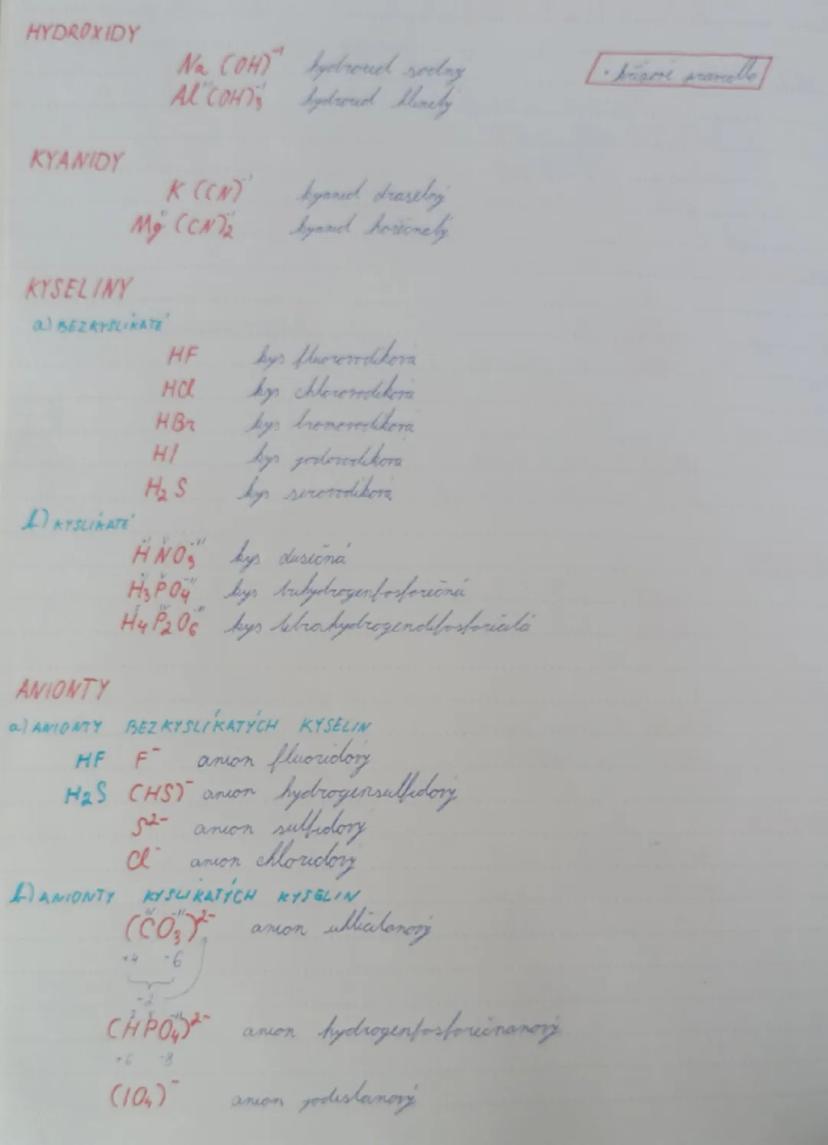 HYDROXIDY
Na (OH)⁻ᴵ hydroxid sodný
Alᴵᴵᴵ(OH)₃⁻ᴵ hydroxid hlinitý
• křížové pravidlo
KYANIDY
K (CN)⁻ᴵ kyanid draselný
Mgᴵᴵ (CN)₂⁻ᴵ kyanid hořečnatý
KYSELINY
a) BEZKYSLÍKATÉ
HF kys fluorovodíková
HCl kys chlorovodíková
HBr kys bromovodíková
HI kys jodovodíková
H₂S kys sirovodíková
b) KYSLÍKATÉ
HᴵNⱽO₃⁻ᴵᴵ kys dusičná
H₃ᴵPⱽO₄⁻ᴵᴵ kys trihydrogenfosforečná
H₄ᴵP₂ᴵⱽO₆⁻ᴵᴵ kys tetrahydrogendifosforičitá
ANIONTY
a) ANIONTY BEZKYSLÍKATÝCH KYSELIN
HF F⁻ anion fluoridový
H₂S (HS)⁻ anion hydrogensulfidový
S²⁻ anion sulfidový
Cl⁻ anion chloridový
b) ANIONTY KYSLIKATÝCH KYSELIN
(CᴵⱽO₃⁻ᴵᴵ)²⁻ anion uhličitanový
+4 -6
-2
(HᴵPⱽO₄⁻ᴵᴵ)²⁻ anion hydrogenfosforečnanový
+6 -8
(IO₄)⁻ anion jodistanový